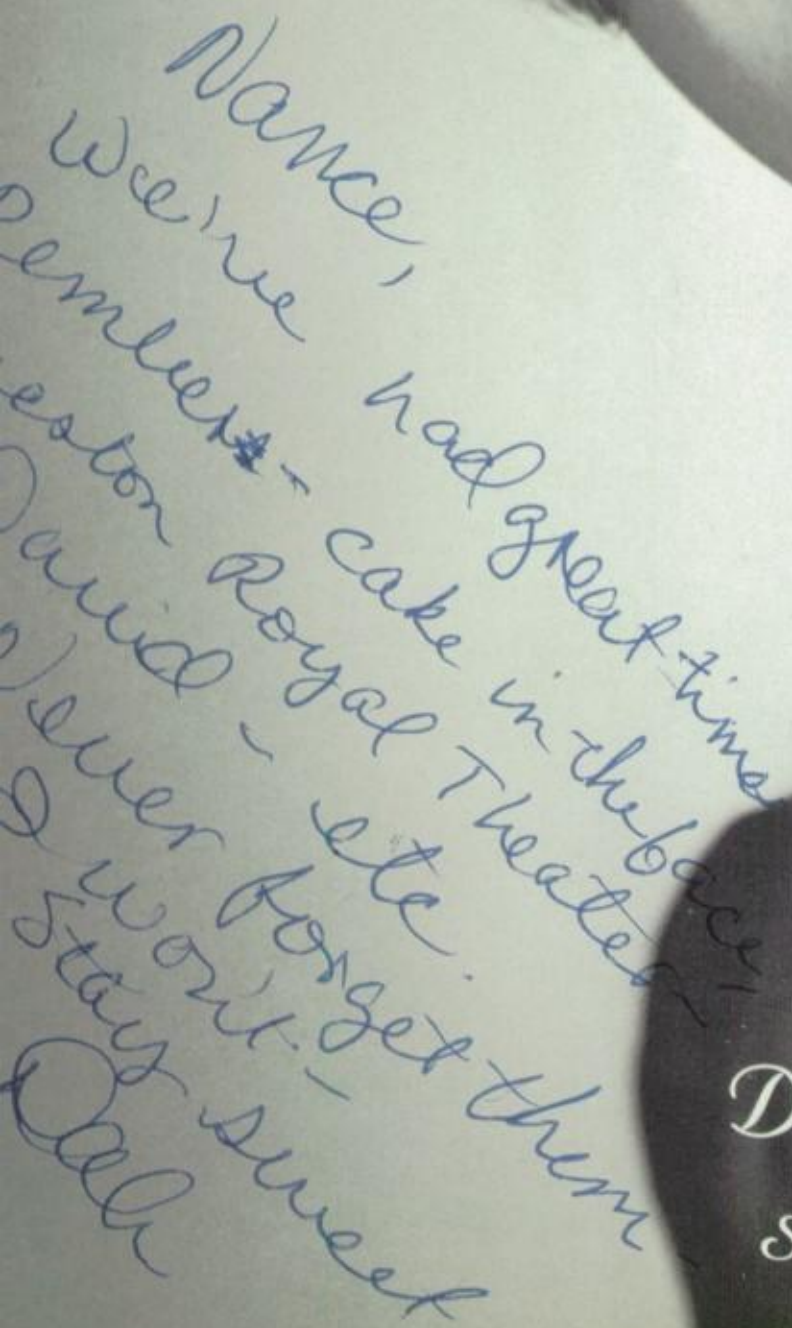 Nance,
We've had great times
Remember - cake in the face,
eston Royal Theater
David - etc.
Never forget them -
I won't -
Stay sweet
Deb
D
s